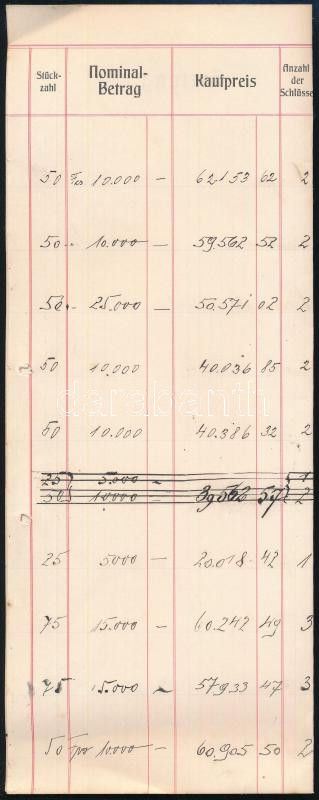 Stück-zahl Nominal-Betrag Kaufpreis Anzahl der Schlüsse
50 Frcs 10.000 — 62153 62 2
50 " 10.000 — 59.562 52 2
50 " 25.000 — 50.571 02 2
50 10.000 40.036 85 2
darabanth
50 10.000 40.386 32 2
25 5.000 — 1
50 10000 39.562 57 2
25 5000 — 20.018 42 1
75 15.000 — 60.242 49 3
75 15.000 — 57933 47 3
50 10000 — 60,905 50 2